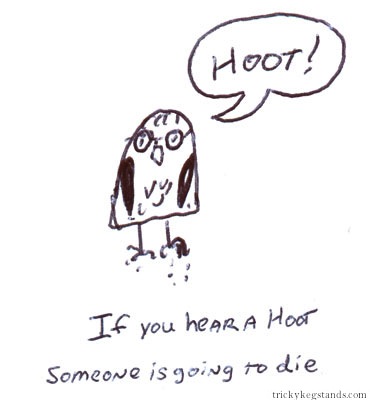 HOOT!
If you heAR A Hoot
Someone is going to die
trickykegstands.com